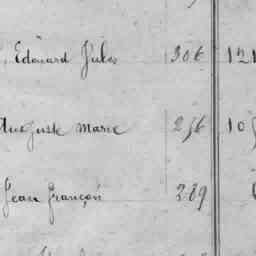 Edouard Jules 306 121
Auguste Marie 256 10
Jean François 289